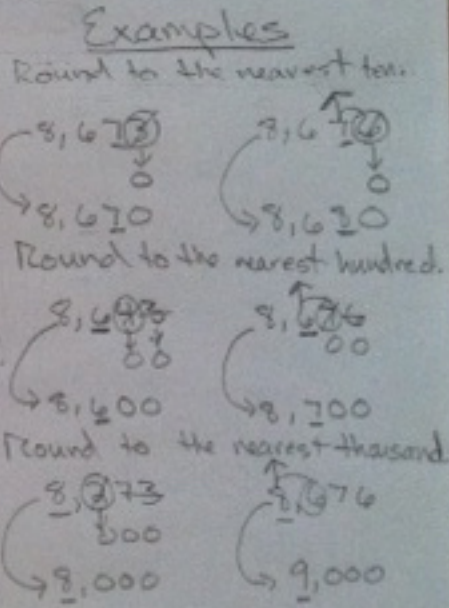 Examples
Round to the nearest ten.
8,673 8,676
0 0
8,670 8,680
Round to the nearest hundred.
8, 8,676
00 00
8,600 8,700
Round to the nearest thousand
8,273 8,676
000
8,000 9,000